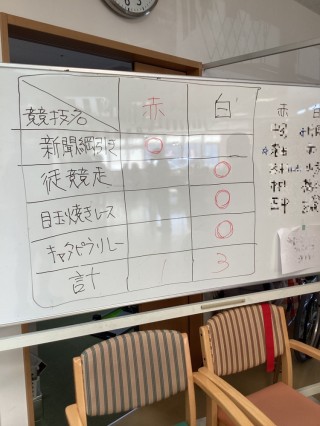 競技名 赤 白
新聞綱引き ○
徒競走 ○
目玉焼きレース ○
キャタピラリレー ○
計 1 3
赤 白